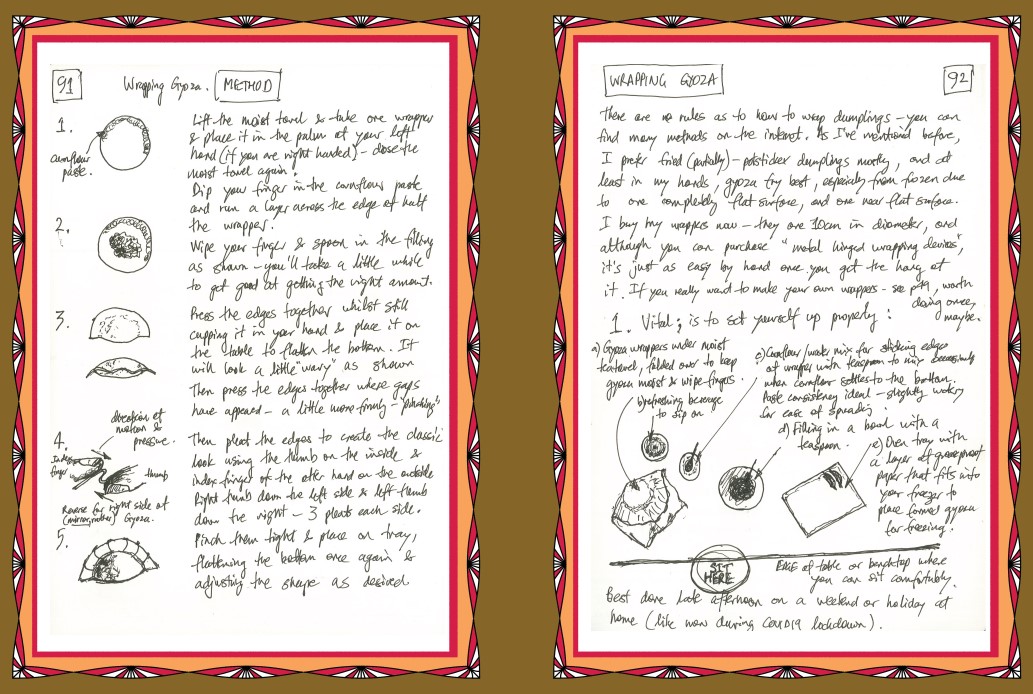 91
Wrapping Gyoza. METHOD
1.
cornflour
paste.
Lift the moist towel & take one wrapper
& place it in the palm of your left
hand (if you are right handed) - close the
moist towel again.
Dip your finger in the cornflour paste
and run a layer across the edge of half
the wrapper.
2.
Wipe your finger & spoon in the filling
as shown - you'll take a little while
to get good at getting the right amount.
3.
Press the edges together whilst still
cupping it in your hand & place it on
the table to flatten the bottom. It
will look a little "wavy" as shown
Then press the edges together where gaps
have appeared - a little more firmly - "pinching"
4.
direction of
motion &
pressure.
Index
finger
thumb
Reverse for right side of
(mirror, rather) Gyoza.
Then pleat the edges to create the classic
look using the thumb on the inside &
index finger of the other hand on the outside
Right thumb down the left side & left thumb
down the right - 3 pleats each side.
5.
Pinch them tight & place on tray,
flattening the bottom once again &
adjusting the shape as desired
WRAPPING GYOZA
92
There are no rules as to how to wrap dumplings - you can
find many methods on the internet. As I've mentioned before,
I prefer fried (partially) - potsticker dumplings mostly, and at
least in my hands, gyoza fry best, especially from frozen due
to one completely flat surface, and one near flat surface.
I buy my wrappers now - they are 10cm in diameter, and
although you can purchase "metal hinged wrapping devices",
it's just as easy by hand once you get the hang of
it. If you really want to make your own wrappers - see p79, worth
doing once,
maybe.
1. Vital; is to set yourself up properly:
a) Gyoza wrappers under moist
teatowel, folded over to keep
gyoza moist & wipe fingers.
b) refreshing beverage
to sip on
c) Cornflour/water mix for sticking edges
of wrapper with teaspoon to mix occasionally
when cornflour settles to the bottom.
Paste consistency ideal - slightly watery
for ease of spreading.
d) Filling in a bowl with a
teaspoon.
e) Oven tray with
a layer of greaseproof
paper that fits into
your freezer to
place formed gyoza
for freezing.
SIT
HERE
EDGE of table or benchtop where
you can sit comfortably.
Best done late afternoon on a weekend or holiday at
home (like now during COVID19 lockdown).